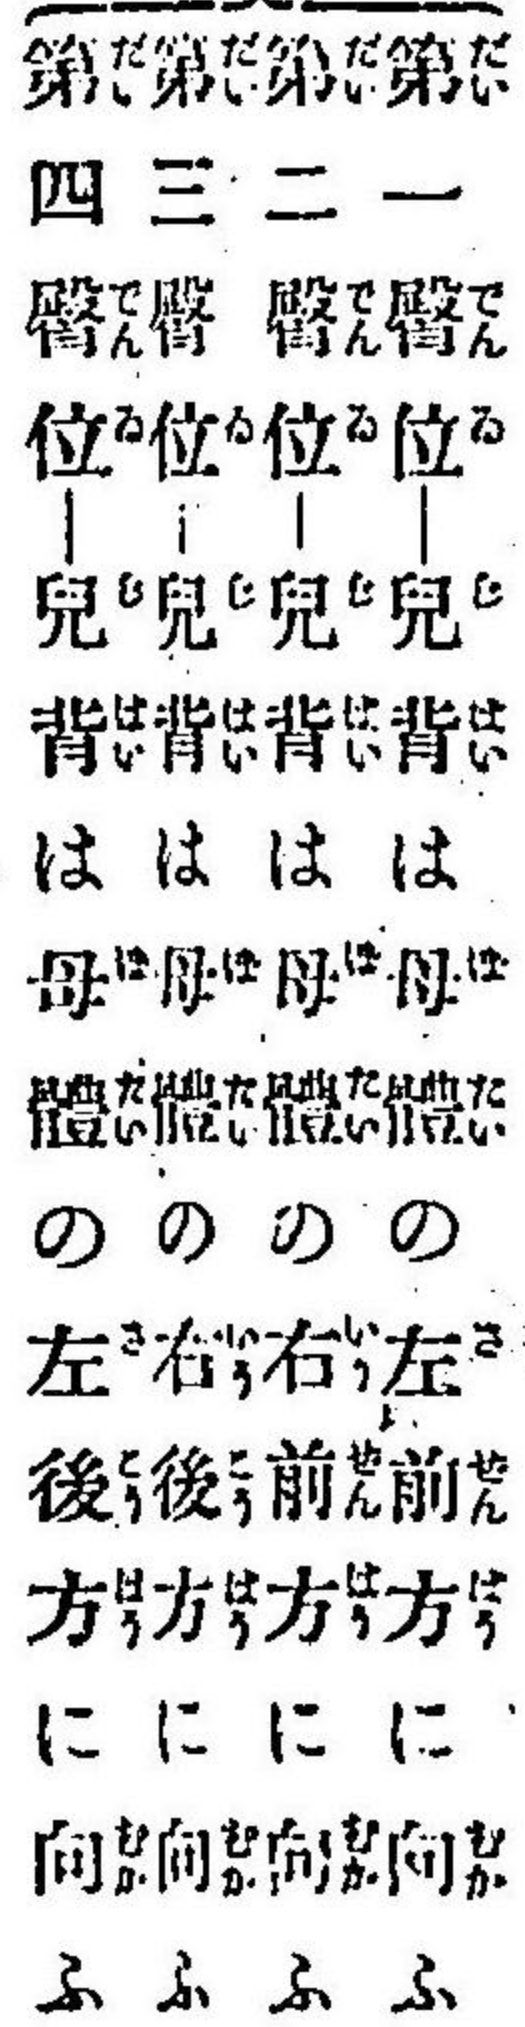 第一臀位―兒背は母體の左前方に向ふ
第二臀位―兒背は母體の右前方に向ふ
第三臀位―兒背は母體の右後方に向ふ
第四臀位―兒背は母體の左後方に向ふ